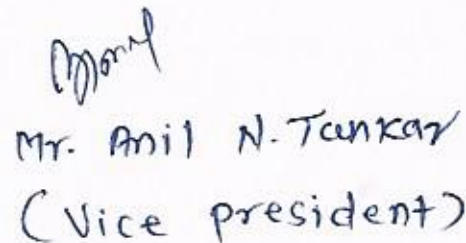 Mr. Anil N. Tankar
(Vice president)